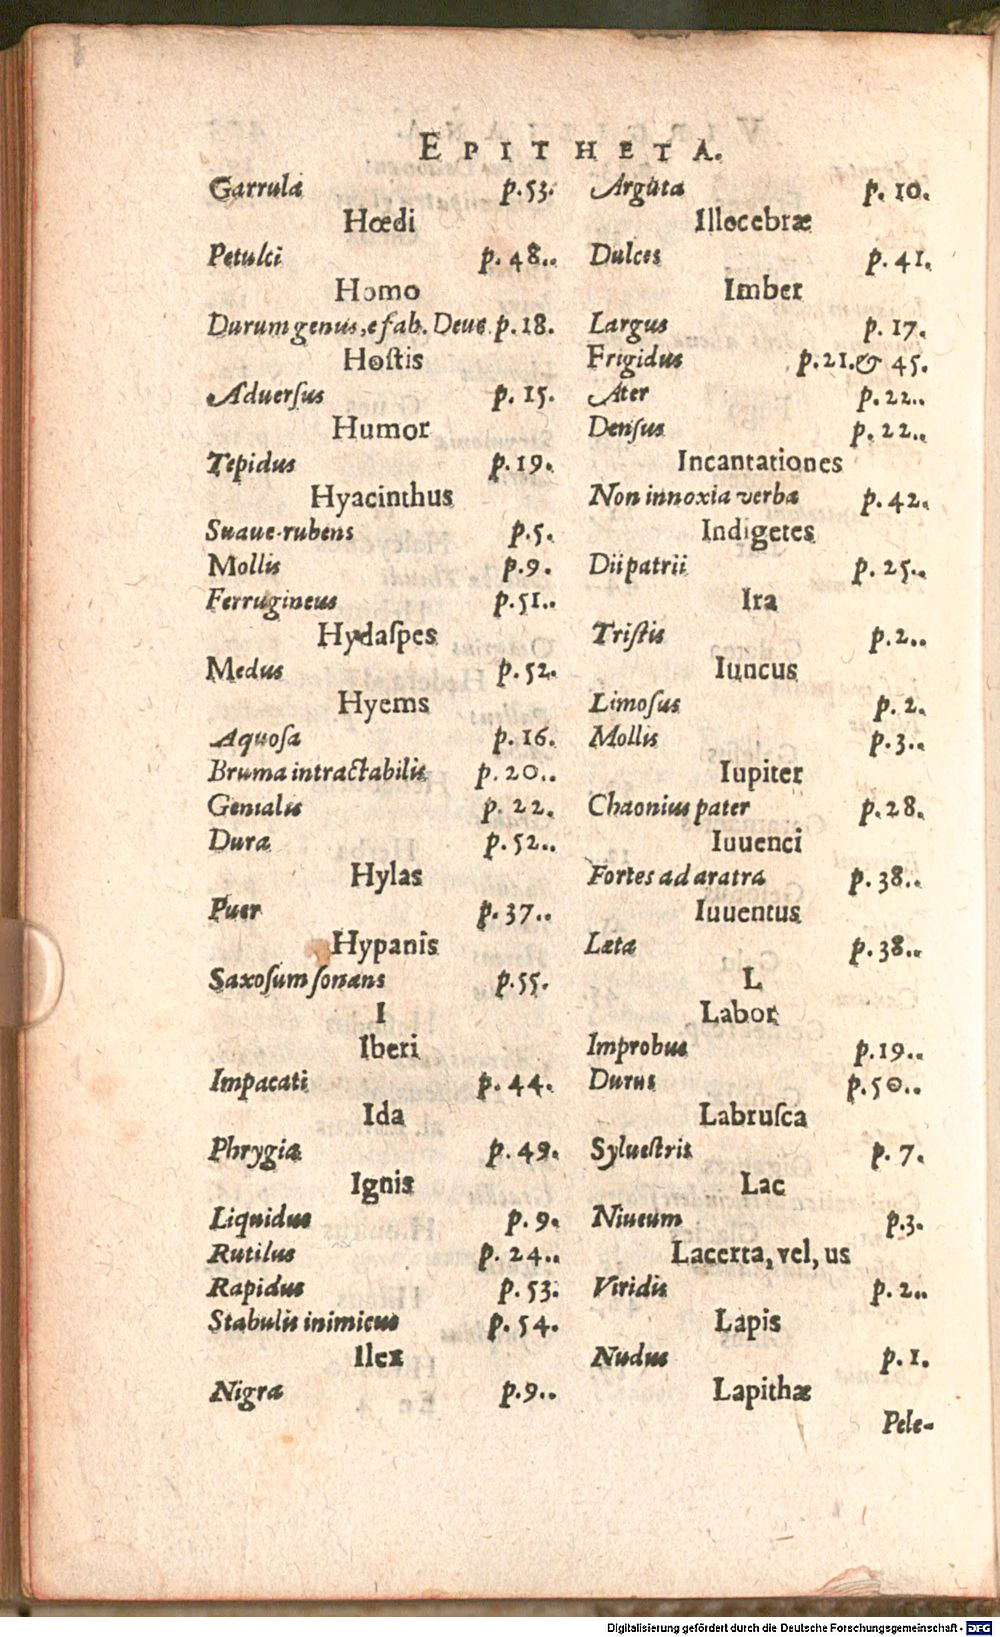 EPITHETA.
Garrula p.53.
Hœdi
Petulci p. 48..
Homo
Durum genus, e fab. Deuc. p.18.
Hoſtis
Aduerſus p. 15.
Humor
Tepidus p.19.
Hyacinthus
Suaue-rubens p.5.
Mollis p.9.
Ferrugineus p.51..
Hydaſpes
Medus p.52.
Hyems
Aquoſa p. 16.
Bruma intractabilis p. 20..
Genialis p. 22.
Dura p.52..
Hylas
Puer p.37..
Hypanis
Saxoſum ſonans p.55.
I
Iberi
Impacati p. 44.
Ida
Phrygia p. 49.
Ignis
Liquidus p. 9.
Rutilus p. 24..
Rapidus p. 53.
Stabulis inimicus p. 54.
Ilex
Nigra p.9..
Arguta p. 10.
Illecebræ
Dulces p. 41.
Imber
Largus p. 17.
Frigidus p.21.& 45.
Ater p.22..
Denſus p.22..
Incantationes
Non innoxia verba p.42.
Indigetes
Dii patrii p. 25..
Ira
Triſtis p.2..
Iuncus
Limoſus p. 2.
Mollis p.3..
Iupiter
Chaonius pater p.28.
Iuuenci
Fortes ad aratra p. 38..
Iuuentus
Læta p.38..
L
Labor
Improbus p.19..
Durus p.50..
Labruſca
Sylueſtris p. 7.
Lac
Niueum p.3.
Lacerta, vel, us
Viridis p.2..
Lapis
Nudus p.1.
Lapithæ
Pele-
Digitalisierung gefördert durch die Deutsche Forschungsgemeinschaft - DFG